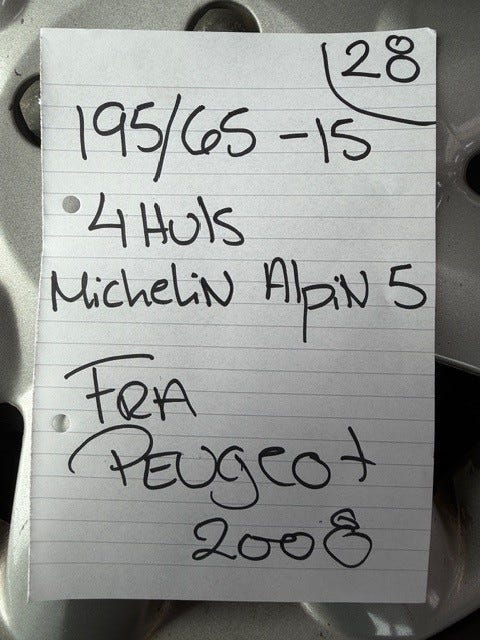 28
195/65 -15
4 Huls
Michelin Alpin 5
FRA
PEUgeot
2008